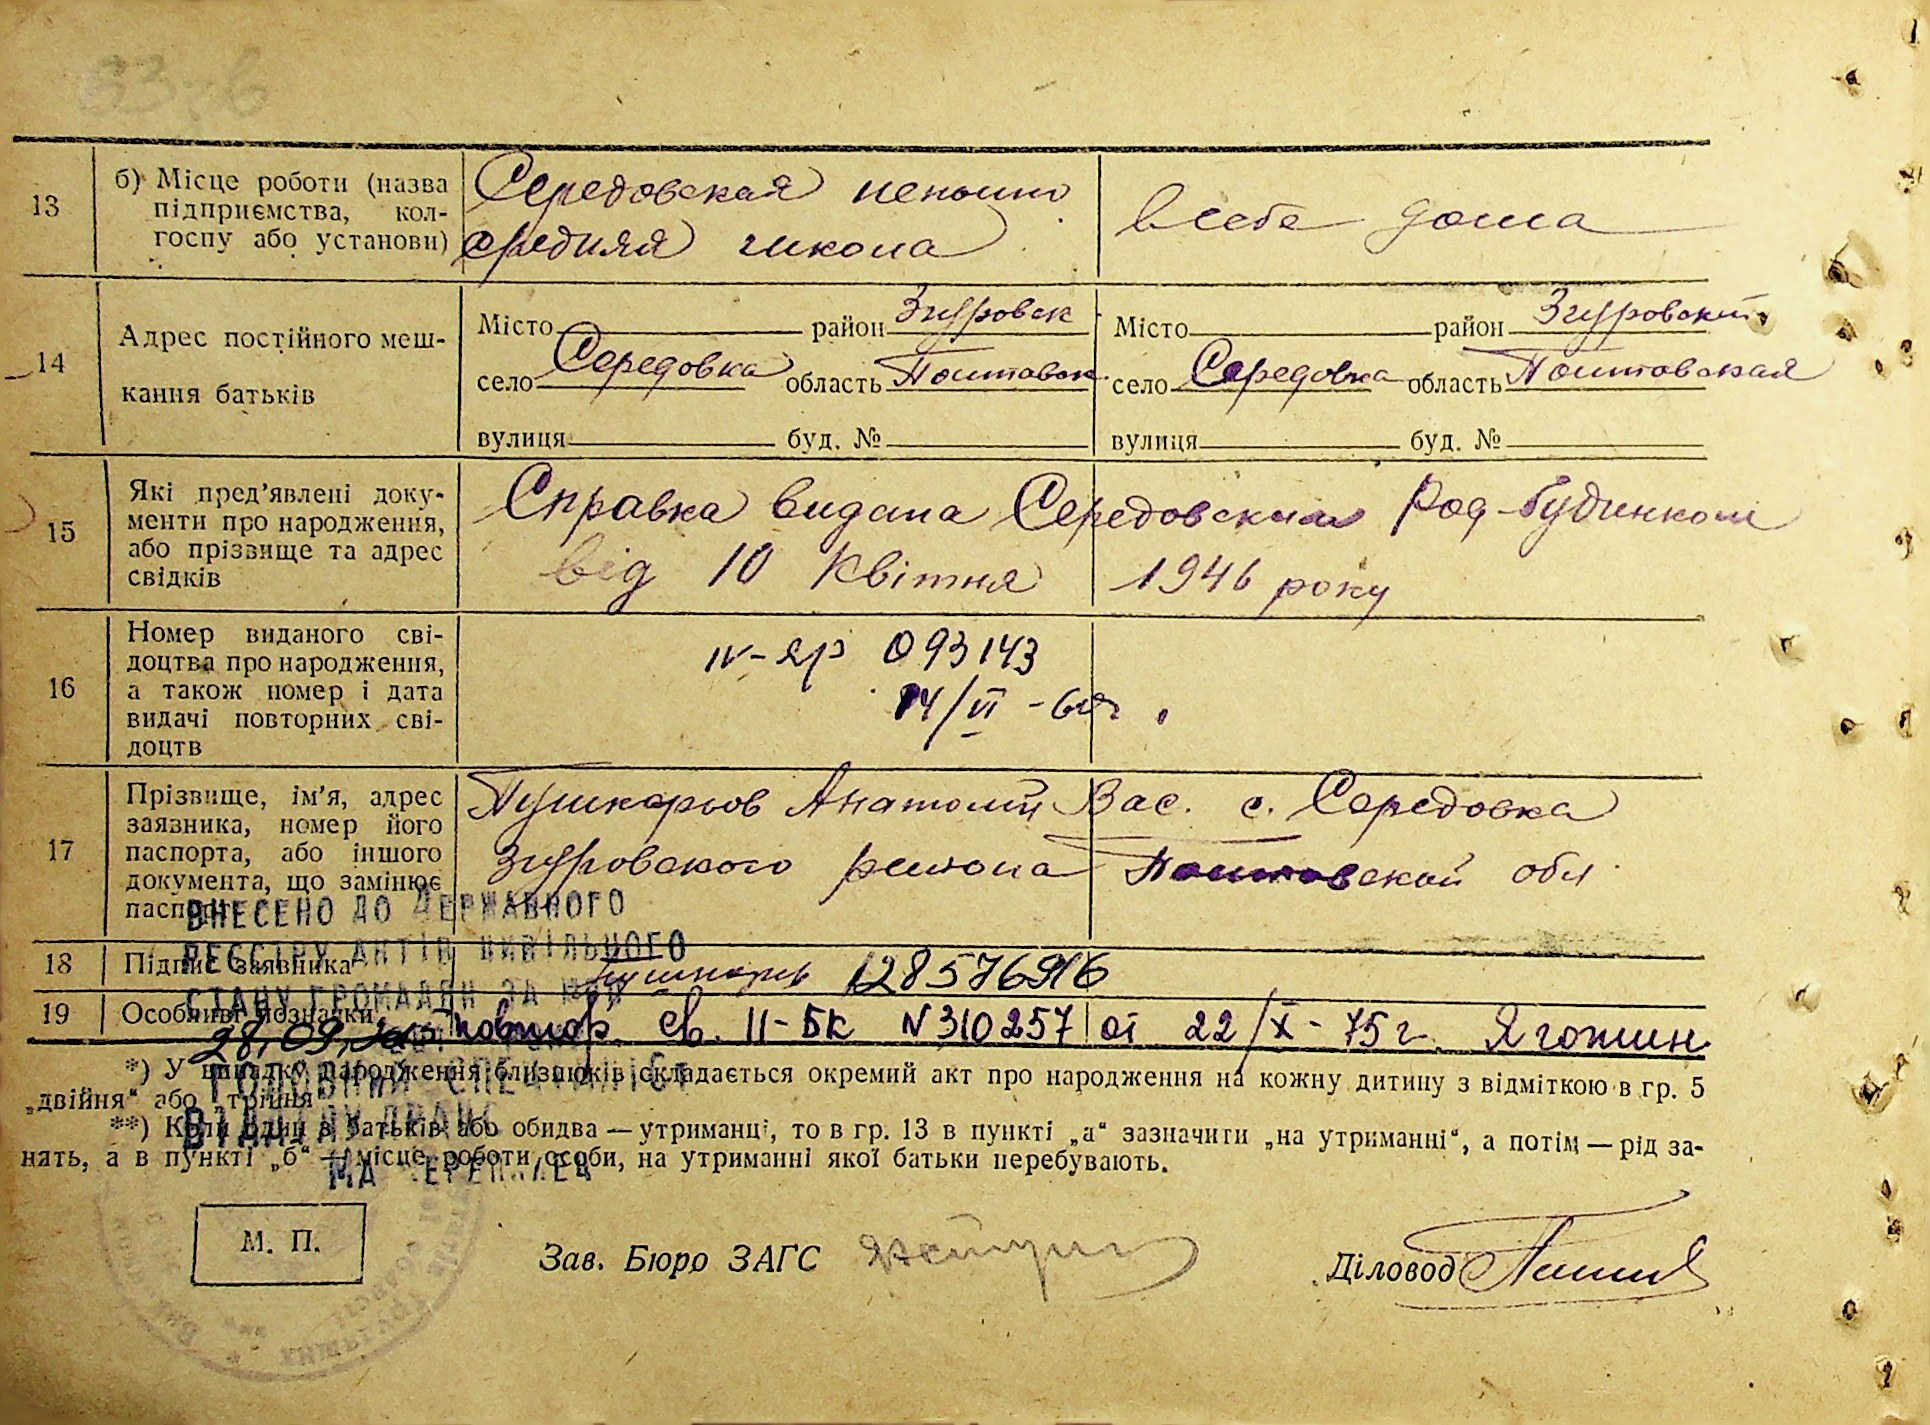 13
б) Місце роботи (назва
підприємства, кол-
госпу або установи)
Середовская неполно
средняя школа
в себе дома
14
Адрес постійного меш-
кання батьків
Місто район Згуровск
село Середовка область Полтавск.
вулиця буд. №
Місто район Згуровский
село Середовка область Полтовская
вулиця буд. №
15
Які пред’явлені доку-
менти про народження,
або прізвище та адрес
свідків
Справка видана Середовским Род-будинком
від 10 Квітня 1946 року
16
Номер виданого сві-
доцтва про народження,
а також номер і дата
видачі повторних сві-
доцтв
IV-ЯР 093143
14/VI - 60г.
17
Прізвище, ім’я, адрес
заявника, номер його
паспорта, або іншого
документа, що замінює
паспорт
Пушкарьов Анатолий Вас. с. Середовка
Згуровского района Полтовской обл.
ВНЕСЕНО ДО ДЕРЖАВНОГО
РЕЄСТРУ АКТІВ ЦИВІЛЬНОГО
СТАНУ ГРОМАДЯН ЗА №
18
Підпис заявника
12857696
19
Особливі позначки
повтор. св. II-БК N310257 от 22/X-75г. Яготин
28.09.
ГОЛОВНИЙ СПЕЦІАЛІСТ
ВІДДІЛУ ДРАЦС
*) У випадку народження близнюків складається окремий акт про народження на кожну дитину з відміткою в гр. 5
„двійня“ або „трійня“
**) Коли один з батьків або обидва — утриманці, то в гр. 13 в пункті „а“ зазначити „на утриманні“, а потім — рід за-
нять, а в пункті „б“ — місце роботи особи, на утриманні якої батьки перебувають.
М. П.
Зав. Бюро ЗАГС
Діловод